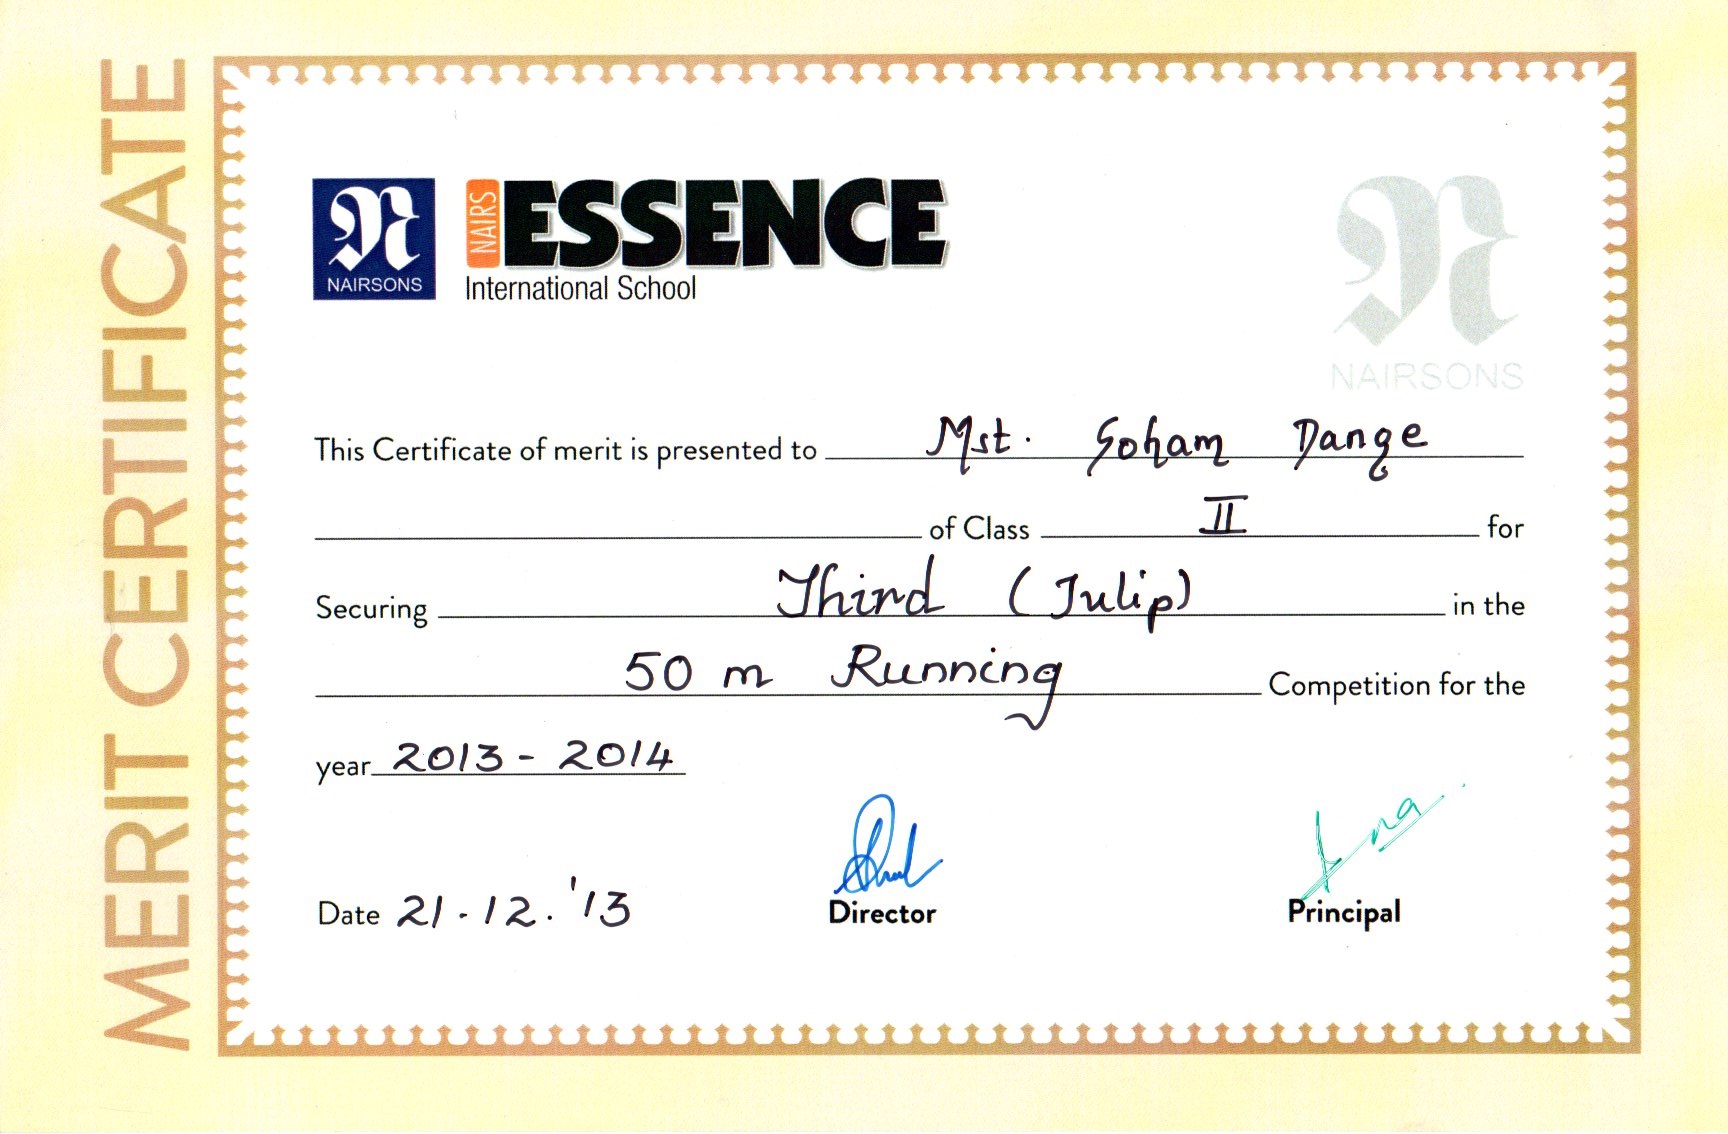 MERIT CERTIFICATE
N
NAIRSONS
NAIRS ESSENCE
International School
N
NAIRSONS
This Certificate of merit is presented to Mst. Soham Dange
of Class II for
Securing Third (Tulip) in the
50 m Running Competition for the
year 2013 - 2014
Date 21.12.'13
Director
Principal